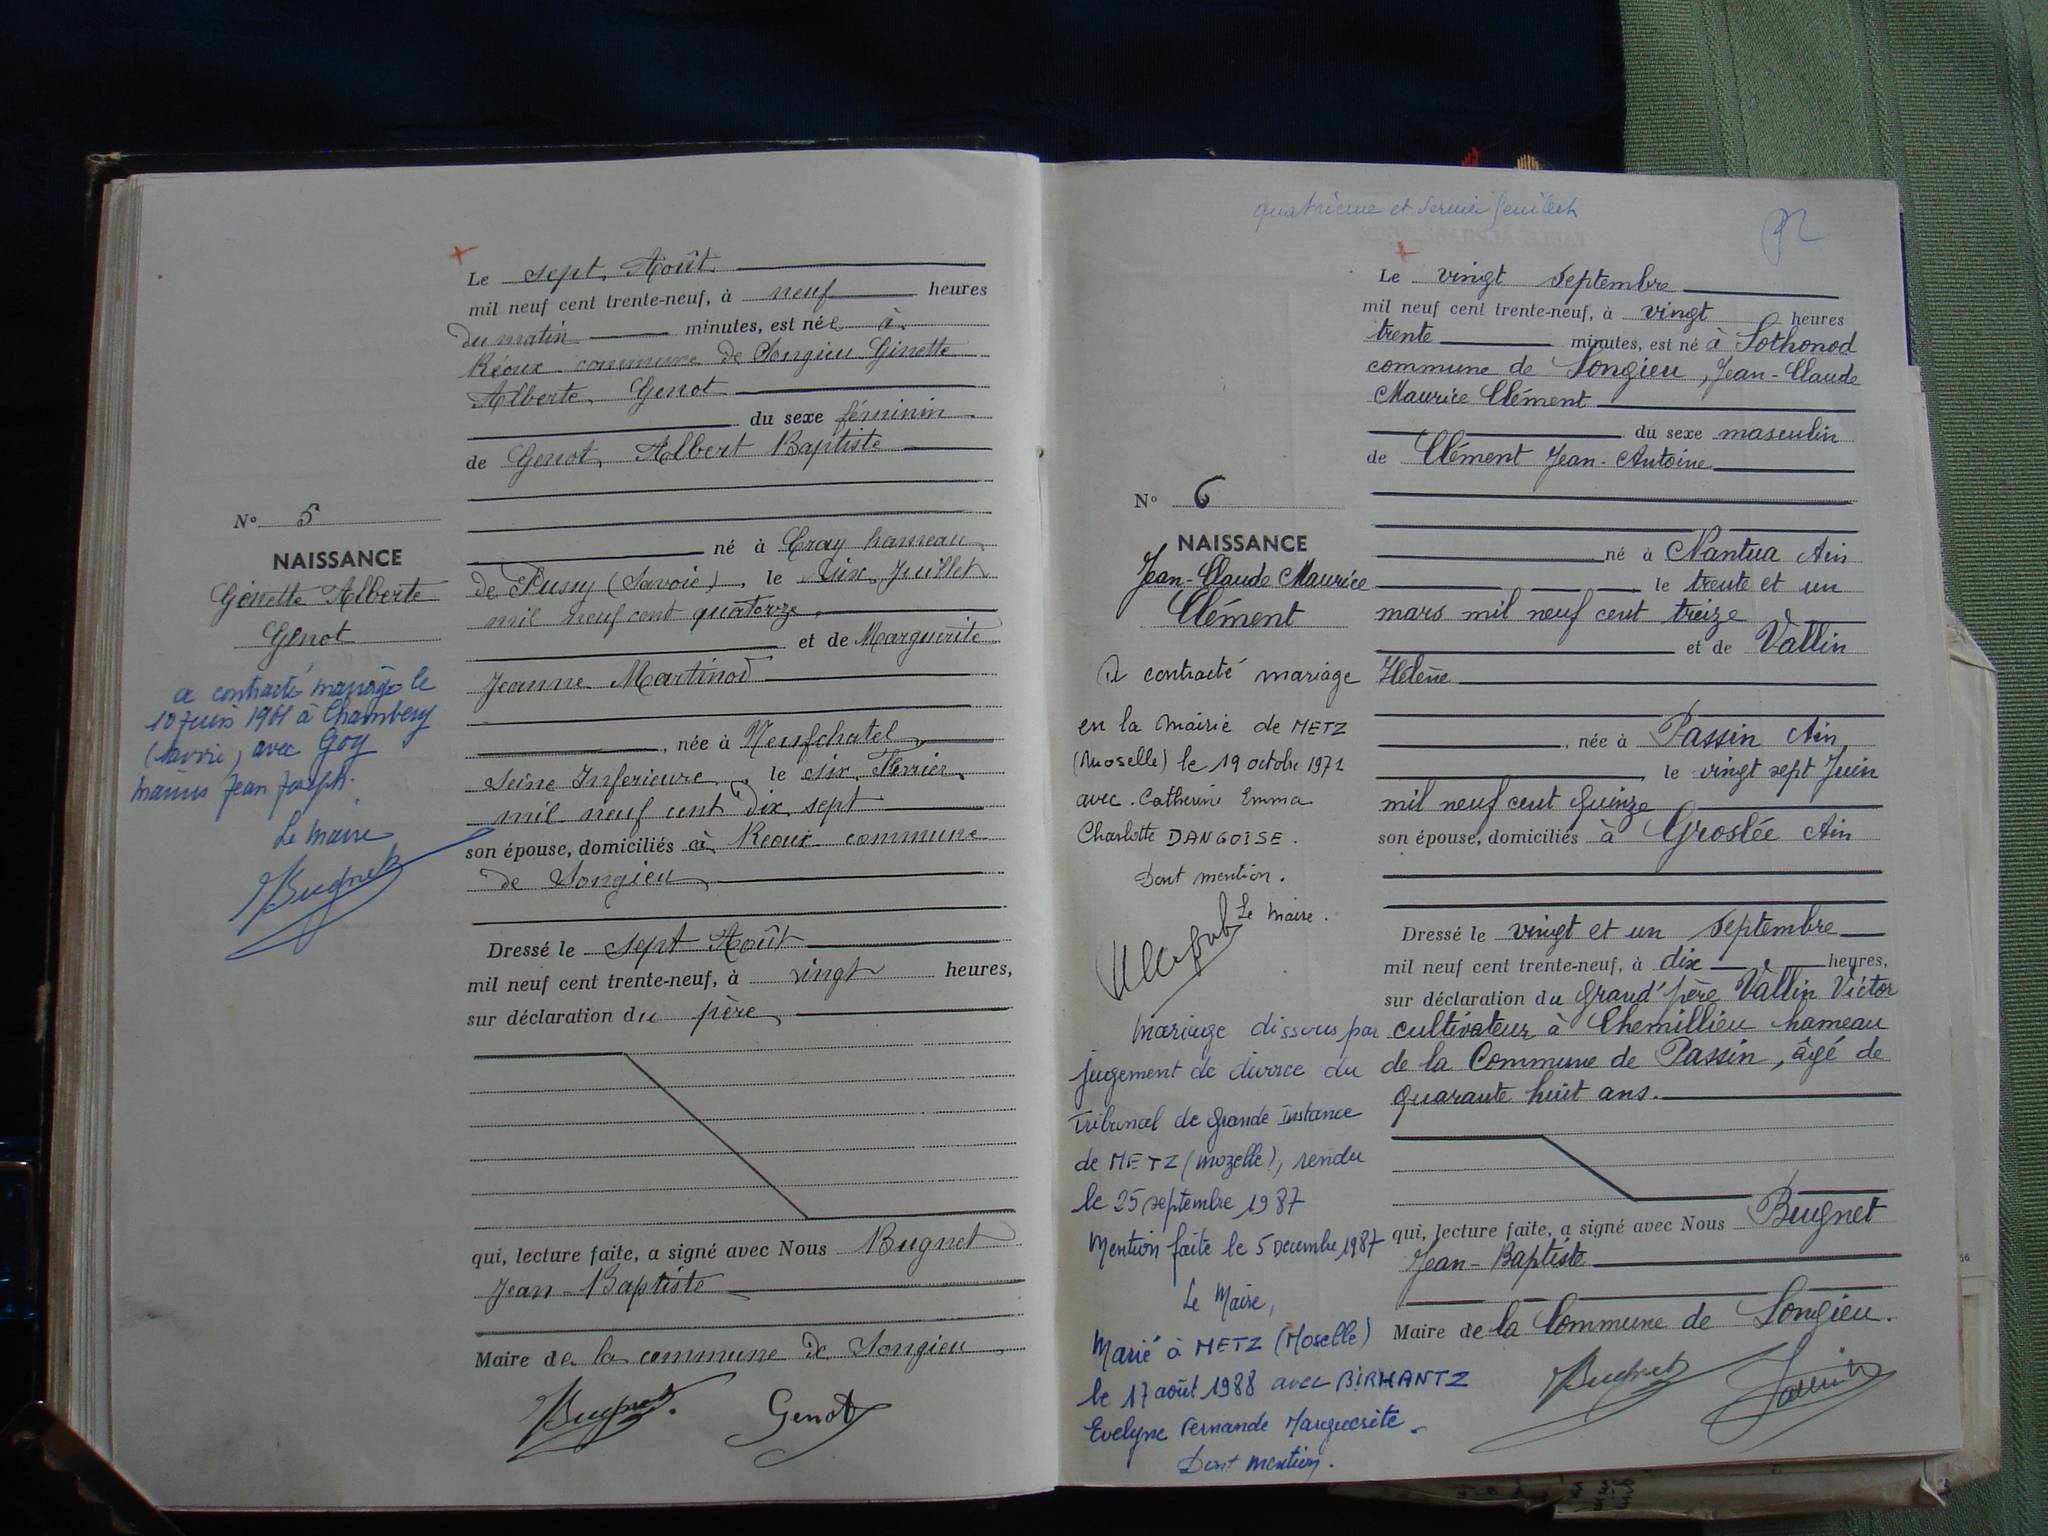 Le sept Août
mil neuf cent trente-neuf, à neuf heures
du matin minutes, est née à
Réoux commune de Songieu Ginette
Alberte Genot
du sexe féminin
de Genot Albert Baptiste
N° 5
NAISSANCE
Ginette Alberte
Genot
a contracté mariage le
10 juin 1961 à Chambéry
(Savoie) avec Goy
Marius Jean Joseph.
Le Maire
Bugnet
né à
hameau
de (Savoie), le six Juillet
mil neuf cent quatorze
et de Marguerite
Jeanne Martinod
, née à Neufchatel
Seine Inférieure, le six Février
mil neuf cent dix sept
son épouse, domiciliés à Réoux commune
de Songieu
Dressé le sept Août
mil neuf cent trente-neuf, à vingt heures,
sur déclaration du père
qui, lecture faite, a signé avec Nous Bugnet
Jean-Baptiste
Maire de la commune de Songieu
Bugnet. Genot
quatrième et dernier feuillet
Le vingt Septembre
mil neuf cent trente-neuf, à vingt heures
trente minutes, est né à Sothonod
commune de Songieu, Jean-Claude
Maurice Clément
du sexe masculin
de Clément Jean-Antoine
N° 6
NAISSANCE
Jean-Claude Maurice
Clément
A contracté mariage
en la Mairie de METZ
(Moselle) le 19 octobre 1971
avec Catherine Emma
Charlotte DANGOISE.
Dont mention.
Le Maire.
Mariage dissous par
jugement de divorce du
Tribunal de Grande Instance
de METZ (Mozelle), rendu
le 25 septembre 1987
Mention faite le 5 Decembre 1987
Le Maire,
Marié à METZ (Moselle)
le 17 août 1988 avec BIRHANTZ
Evelyne Fernande Marguerite.
Dont mention.
né à Nantua Ain
le trente et un
mars mil neuf cent treize
et de Vallin
Hélène
, née à Passin Ain
le vingt sept Juin
mil neuf cent quinze
son épouse, domiciliés à Groslée Ain
Dressé le vingt et un Septembre
mil neuf cent trente-neuf, à dix heures,
sur déclaration du Grand'père Vallin Victor
cultivateur à Chemillieu hameau
de la Commune de Passin, âgé de
quarante huit ans.
qui, lecture faite, a signé avec Nous Bugnet
Jean-Baptiste
Maire de la Commune de Songieu.
Bugnet
56